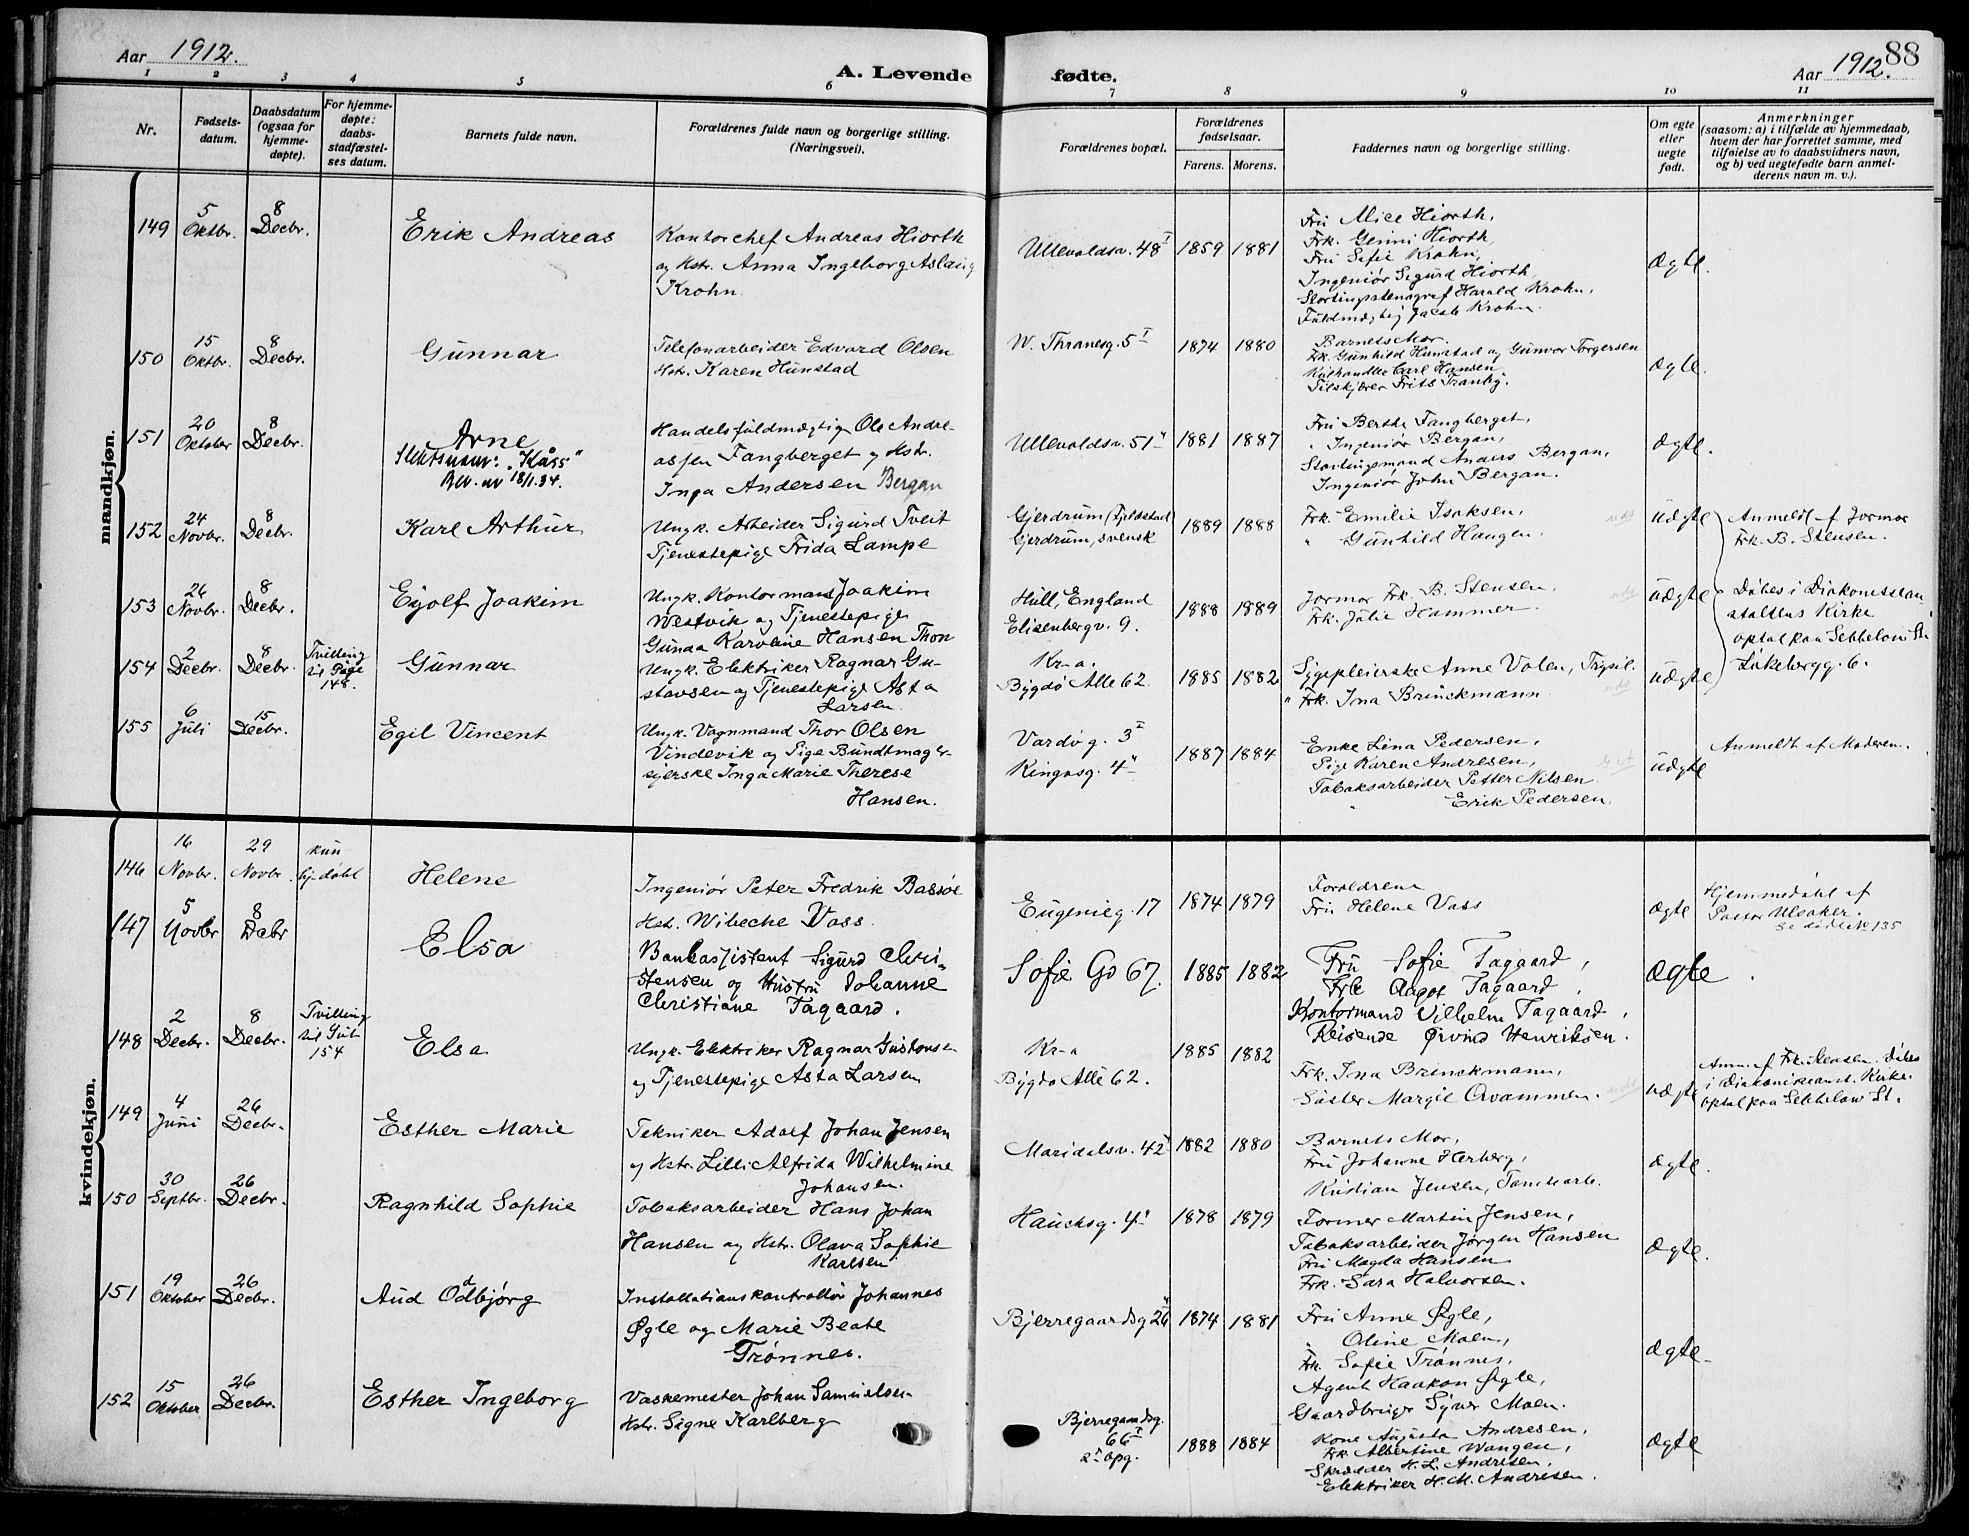 Aar 1912.
A. Levende
fødte.
Aar 1912.
88
1 2 3 4 5 6 7 8 9 10 11
Nr.
Fødsels-
datum.
Daabsdatum
(ogsaa for
hjemme-
døpte).
For hjemme-
døpte:
daabs-
stadfæstel-
ses datum.
Barnets fulde navn.
Forældrenes fulde navn og borgerlige stilling.
(Næringsvei).
Forældrenes bopæl.
Forældrenes
fødselsaar.
Farens. Morens.
Faddernes navn og borgerlige stilling.
Om egte
eller
uegte
født.
Anmerkninger
(saasom: a) i tilfælde av hjemmedaab,
hvem der har forrettet samme, med
tilføielse av to daabsvidners navn,
og b) ved uegtefødte barn anmel-
derens navn m. v.).
mandkjøn.
149
5
Oktbr.
8
Decbr.
Erik Andreas
Kontorchef Andreas Hiorth
og Hstr. Anna Ingeborg Aslaug
Krohn
Ullevoldsv. 48 I
1859 1881
Fru Alice Hiorth,
Frk. Genni Hiorth,
Fru Sofie Krohn,
Ingeniør Sigurd Hiorth
Stortingsstenograf Harald Krohn,
Fuldmægtig Jacob Krohn.
Ægte.
150
15
Oktbr.
8
Decbr.
Gunnar
Telefonarbeider Edvard Olsen
Hstr. Karen Hunstad
W. Thranesg. 5 I
1874 1880
Barnets Mor.
Frk. Gunhild Hunstad og Gunvor Torgersen
Kulhandler Carl Hansen
Frits Tranby.
Ægte.
151
20
Oktober
8
Decbr.
Arne
Slektsnavn: "Kåss"
Bev. av 18/1.34.
Handelsfuldmægtig Ole Andre-
assen Fangberget og Hstr.
Inga Andersen Bergan
Ullevoldsv. 51 II
1881 1887
Fru Berthe Fangberget,
" Ingeniør Bergan,
Stortingsmand Anders Bergan,
Ingeniør John Bergan.
Ægte.
152
24
Novbr.
8
Decbr.
Karl Arthur
Ungk. Arbeider Sigurd Tveit
Tjenestepige Frida Lampe
Gjerdrum (Fjeldstad
Gjerdrum, svensk
1889 1888
Frk. Emilie Isaksen,
" Gunhild Haugen.
uægte
Anmeldt af Jormor
Frk. B. Stensen.
153
26
Novbr.
8
Decbr.
Eyolf Joakim
Ungk. Kontormand Joakim
Westvik og Tjenestepige
Gunda Karoline Hansen Thon
Hull, England
Elisenbergv. 9.
1888 1889
Jormor Frk. B. Stensen.
Frk. Julie Hammer.
uægte
Døbes i Diakonissean-
staltens Kirke
optal paa Sebbelow St.
Løkebergg. 6.
154
2
Decbr.
8
Decbr.
Tvilling
til Pige
148.
Gunnar
Ungk. Elektriker Ragnar Gu-
stavsen og Tjenestepige Asta
Larsen.
Kr-a.
Bygdø Alle 62.
1885 1882
Sygepleierske Anne Volen, Trysil.
" Frk. Ina Brinckmann
uægte
155
6
Juli
15
Decbr.
Egil Vincent
Ungk. Vognmand Thor Olsen
Vindevik og Pige Bundtmager-
syerske Inga Marie Therese
Hansen.
Vardøg. 3 I
Kingosg. 4 II
1887 1884
Enke Lina Pedersen,
Pige Karen Andresen,
Tobaksarbeider Petter Nilsen
" Erik Pedersen.
uægte
Anmeldt af Moderen.
kvindekjøn.
146
16
Novbr.
29
Novbr.
kun
hj-døbt
Helene
Ingeniør Peter Fredrik Bassøe
Hstr. Wibecke Vass.
Eugenieg. 17
1874 1879
Forældrene
Fru Helene Vass
Ægte
Hjemmedøbt af
Pastor Ulsaker.
se døde No 135
147
5
Novbr
8
Decbr
Elsa
Bankassistent Sigurd Chri-
stensen og Hustru Johanne
Christiane Fagaard.
Sofie Gd 67.
1885 1882
Fru Sofie Fagaard,
Frk Aagot Fagaard,
Kontormand Vilhelm Fagaard,
Reisende Øivind Henriksen.
Ægte.
148
2
Decbr.
8
Decbr.
Tvilling
til Gut
154
Elsa
Ungk. Elektriker Ragnar Gustavsen
og Tjenestepige Asta Larsen
Kr-a
Bygdø Alle 62.
1885 1882
Frk. Ina Brinckmann,
Søster Margit Qvammen.
uægte
Anm. af Frk. Stensen. Døbes
i Diakonisseanst. Kirke.
optal paa Sebbelow St.
149
4
Juni
26
Decbr.
Esther Marie
Tekniker Adolf Johan Jensen
og Hstr. Lilli Alfrida Wilhelmine
Johansen.
Maridalsv. 42 II
1882 1880
Barnets Mor,
Fru Johanne Herberg,
Kristian Jensen, Tømmerh.
Ægte.
150
30
Septbr.
26
Decbr.
Ragnhild Sophie
Tobaksarbeider Hans Johan
Hansen og Hstr. Olava Sophie
Karlsen
Hauchsg. 4 II
1878 1879
Former Martin Jensen,
Tobaksarbeider Jørgen Hansen
Fru Magda Hansen
Frk. Sara Halvorsen.
Ægte.
151
19
Oktober
26
Decbr.
Aud Oddbjørg
Installationskontrollør Johannes
Øgle og Marie Beate
Trønnes.
Bjerregaardsg 26 II
1874 1881
Fru Anne Øgle,
" Oline Moen,
Frk. Sofie Trønnes,
Agent Haakon Øgle,
Gaardbruger Syver Moen.
Ægte.
152
15
Oktober
26
Decbr.
Esther Ingeborg
Vaskemester Johan Samuelsen
Hstr. Signe Karlberg
Bjerregaardsg.
66 I
2den Opg.
1888 1884
Kone Augusta Andresen,
Frk. Albertine Wangen,
Skrædder H. L. Andresen,
Elektriker H. M. Andresen.
Ægte